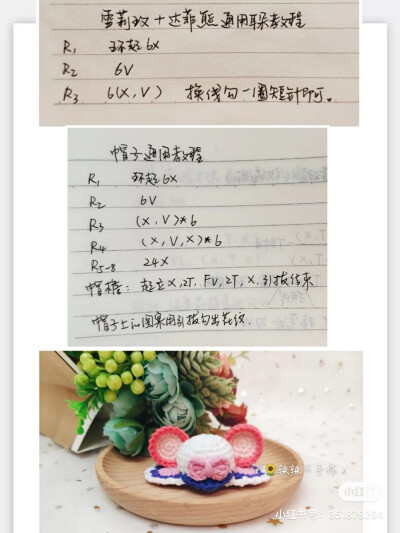 雪莉玫+达菲熊通用耳朵教程
R1 环起6x
R2 6V
R3 6(X,V) 换线勾一圈短针即可。
帽子通用教程
R1 环起6x
R2 6V
R3 (X,V)*6
R4 (X,V,X)*6
R5-8 24X
帽檐: 起立X,2T,FV,2T,X.引拔结束
帽子上的图案用引拔勾出花纹
小红书
小红书号: